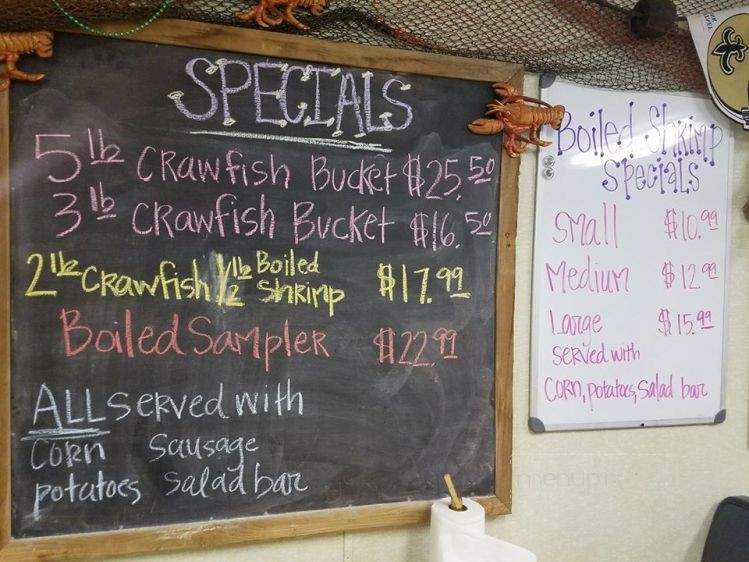 SPECIALS
5 lb Crawfish Bucket $25.50
3 lb Crawfish Bucket $16.50
2 lb Crawfish 1/2 lb Boiled Shrimp $17.99
Boiled Sampler $22.99
ALL served with
Corn Sausage
potatoes salad bar
Boiled Shrimp
Specials
Small $10.99
Medium $12.99
Large $15.99
served with
Corn, potatoes, salad bar